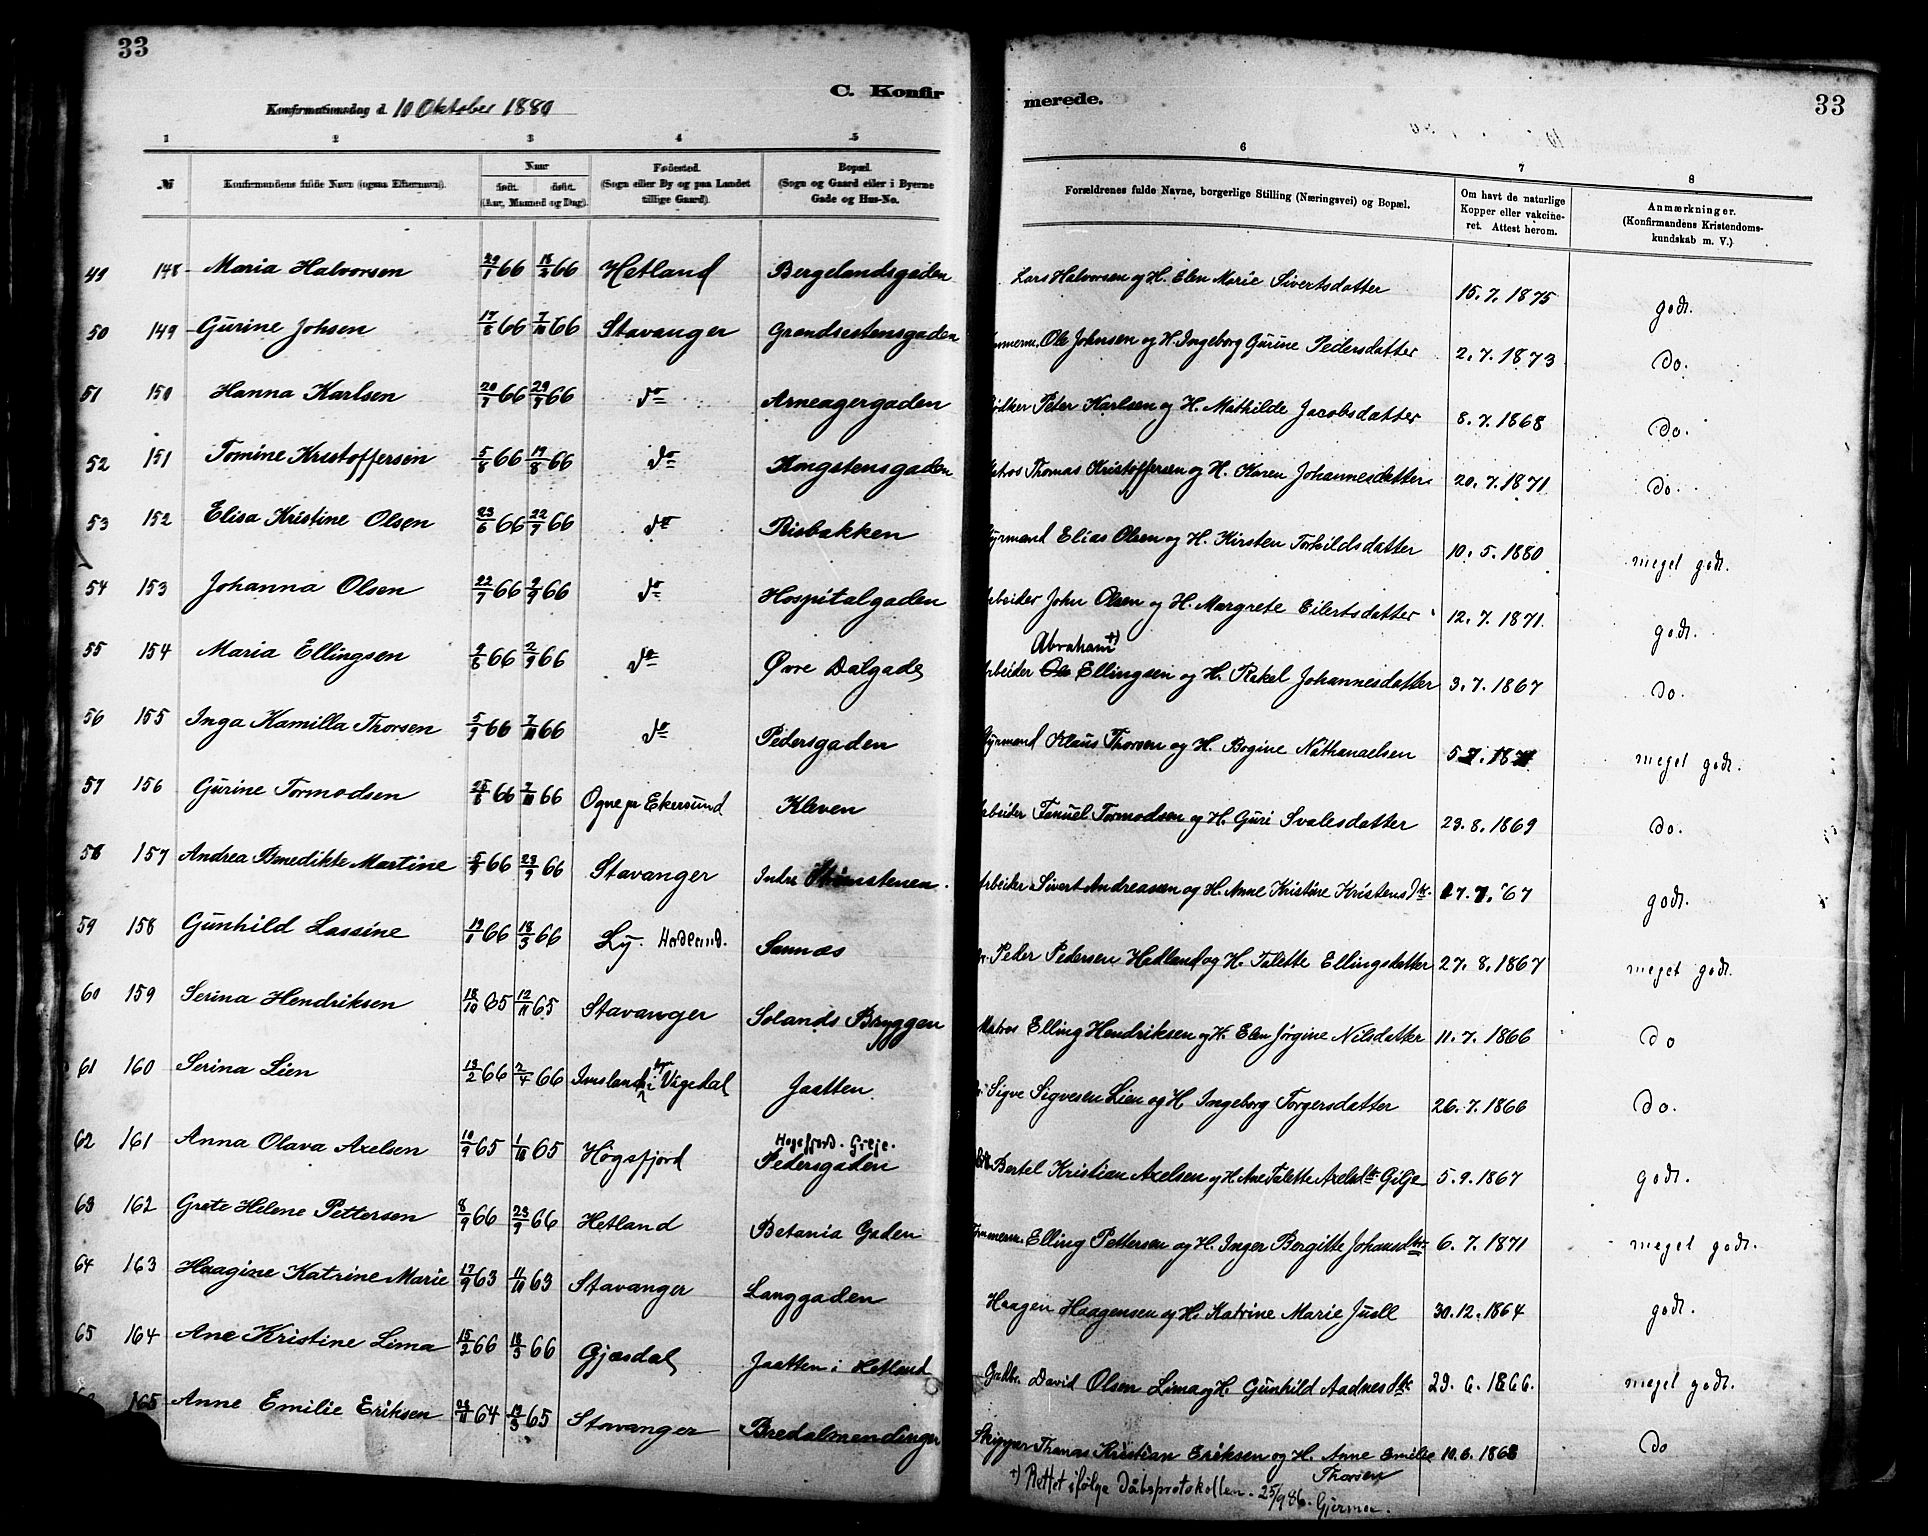 33
33
C. Konfir
merede.
Konfirmationsdag d. 10 Oktober 1880
1 2 3 4 5
6 7 8
№ Konfirmandens fulde Navn (ogsaa Efternavn). Naar født. døbt. (Aar, Maaned og Dag). Fødested. (Sogn eller By og paa Landet tillige Gaard). Bopæl. (Sogn og Gaard eller i Byerne Gade og Hus-No.
Forældrenes fulde Navne, borgerlige Stilling (Næringsvei) og Bopæl. Om havt de naturlige Kopper eller vakcineret. Attest herom. Anmærkninger. (Konfirmandens Kristendomskundskab m. V.)
49 148 Maria Halvorsen 29/1 66 18/3 66 Hetland Bergelandsgaden Lars Halvorsen og H. Elen Marie Sivertsdatter 15.7.1875 godt.
50 149 Gurine Johsen 17/8 66 7/10 66 Stavanger Grandsestensgaden Ole Johnsen og H. Ingeborg Gurine Pedersdatter 2.7.1873 do.
51 150 Hanna Karlsen 20/7 66 29/7 66 do Arneagergaden Bødker Peter Karlsen og H. Mathilde Jacobsdatter 8.7.1868 do.
52 151 Tomine Kristoffersen 5/8 66 19/8 66 do Kongstensgaden Matros Thomas Kristoffersen og H. Karen Johannesdatter 20.7.1871 do.
53 152 Elisa Kristine Olsen 23/6 66 22/7 66 do Risbakken Styrmand Elias Olsen og H. Kirsten Torkildsdatter 10.5.1880 meget godt.
54 153 Johanna Olsen 22/7 66 2/9 66 do Hospitalgaden Arbeider John Olsen og H. Margrete Eilertsdatter 12.7.1871 godt.
Abraham +)
55 154 Maria Ellingsen 9/6 66 2/9 66 do Øvre Dalgade Arbeider Ole Ellingsen og H. Rakel Johannesdatter 3.7.1867 do.
56 155 Inga Kamilla Thorsen 5/9 66 7/10 66 do Pedersgaden Styrmand Klaus Thorsen og H. Bogine Nathanaelsen meget godt.
57 156 Gurine Tormodsen 25/8 66 7/10 66 Ogne pr Ekersund Kleven Arbeider Tanuel Tormodsen og H. Guri Svalesdatter 23.8.1869 do.
58 157 Andrea Benedikte Martine 5/9 66 23/9 66 Stavanger Indre Arbeider Sivert Andreassen og H. Anne Kristine Kristensdtr. 17.7.67 godt.
59 158 Gunhild Lassine 19/1 66 18/3 66 Ly. Hadland. Sannæs Peder Pedersen Hadland og H. Talette Ellingsdatter 27.8.1867 meget godt.
60 159 Serina Hendriksen 18/10 65 12/11 65 Stavanger Solands Bryggen Matros Elling Hendriksen og H. Elen Jørgine Nilsdatter 11.7.1866 do
61 160 Serina Lien 13/2 66 2/4 66 Imsland i Vigedal Jaatten. Sigve Sigvesen Lien og H Ingeborg Torgersdatter 26.7.1866 do.
62 161 Anna Olava Axelsen 10/9 65 1/10 65 Høgsfjord Høgsfjord. Gilje. Pedersgaden Bertel Kristian Axelsen og H. Ane Talette Axelsdtr Gilje 5.9.1867 godt.
63 162 Grete Helene Pettersen 8/9 66 23/9 66 Hetland Betania Gaden Tømmerm. Elling Pettersen og H. Inger Bergitte Johansdtr 6.7.1871 meget godt.
64 163 Haagine Katrine Marie 17/9 63 11/10 63 Stavanger Langgaden Haagen Haagensen og H. Katrine Marie Juell 30.12.1864 godt.
65 164 Ane Kristine Lima 15/2 66 18/3 66 Gjæsdal Jaatten i Hetland Gaardbr. David Olsen Lima og H. Gunhild Aadnesdtr 29.6.1866. meget godt.
165 Anne Emilie Eriksen 64 19/3 65 Stavanger Bredalmendingen Skipper Thomas Kristian Eriksen og H. Anne Emilie Thorsen 10.6.1868 do
+) Rettet ifølge Dåbsprotokollen. 25/9 86. Gjermoe.